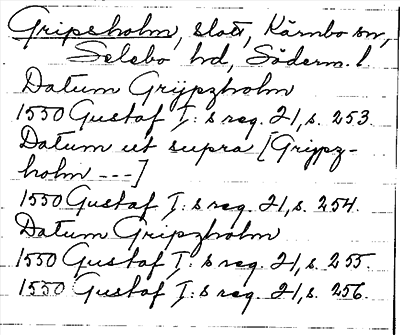 Gripsholm, slott, Kärnbo sn,
Selebo hd, Söderm. l.
Datum Grijpzholm
1550 Gustaf I:s reg. 21, s. 253.
Datum ut supra [Grijpz-
holm ---]
1550 Gustaf I:s reg. 21, s. 254.
Datum Gripzholm
1550 Gustaf I:s reg. 21, s. 255.
1550 Gustaf I:s reg. 21, s. 256.